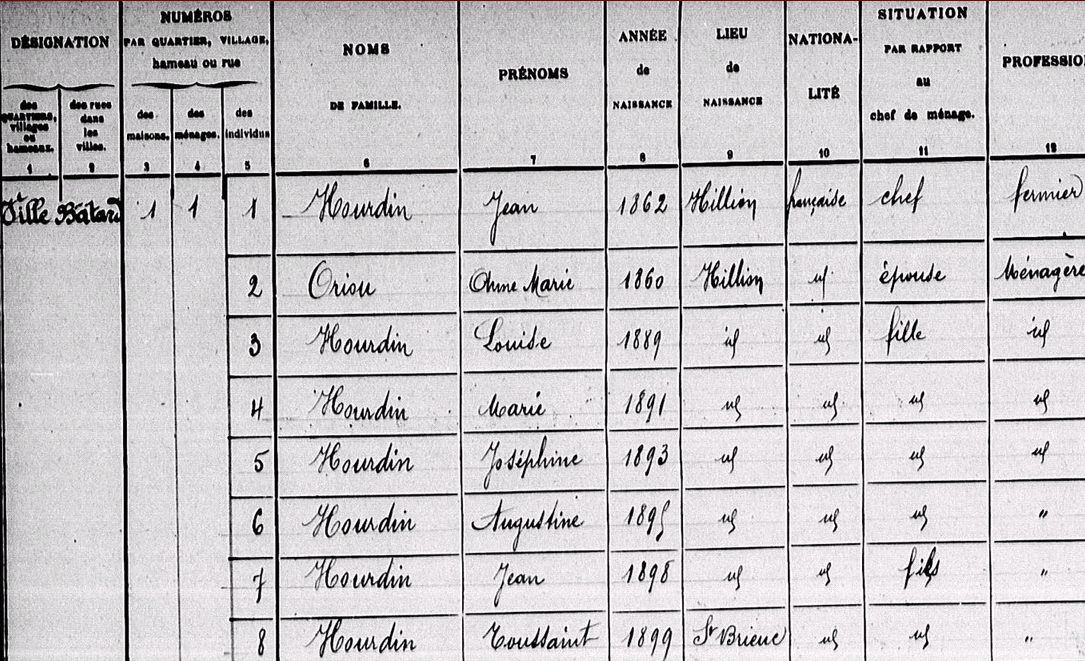 DÉSIGNATION
des QUARTIERS, villages ou hameaux.
des rues dans les villes.
NUMÉROS
PAR QUARTIER, VILLAGE,
hameau ou rue
des maisons.
des ménages.
des individus
NOMS
DE FAMILLE.
PRÉNOMS
ANNÉE
de
NAISSANCE
LIEU
de
NAISSANCE
NATIONA-
LITÉ
SITUATION
PAR RAPPORT
au
chef de ménage.
PROFESSIO
1 2 3 4 5 6 7 8 9 10 11 12
Ville Bâtard 1 1 1 Hourdin Jean 1862 Hillion française chef fermier
2 Oriou Anne Marie 1860 Hillion id épouse Ménagère
3 Hourdin Louise 1889 id id fille id
4 Hourdin Marie 1891 id id id id
5 Hourdin Joséphine 1893 id id id id
6 Hourdin Augustine 1895 id id id "
7 Hourdin Jean 1898 id id fils "
8 Hourdin Toussaint 1899 St Brieuc id id "